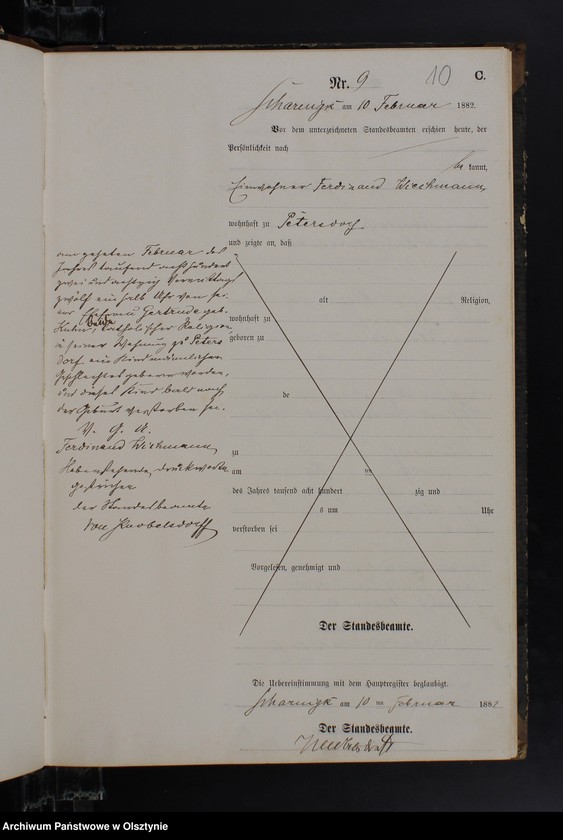 Nr. 9
10
C.
Scharnigk am 10 Februar 1882.
Vor dem unterzeichneten Standesbeamten erschien heute, der
Persönlichkeit nach
be kannt,
Einwohner Ferdinand Wiechmann
wohnhaft zu Petersdorf
und zeigte an, daß
alt Religion,
wohnhaft zu
geboren zu
de
zu
am ten
des Jahres tausend acht hundert zig und
s um Uhr
verstorben sei
Vorgelesen, genehmigt und
Der Standesbeamte.
am zehnten Februar des
Jahres tausend achthundert
zwei und achtzig Vormittags
zwölf ein halb Uhr von sei
ner Ehefrau Gertrude geb.
Beide
Kuhn, katholischer Religion
in seiner Wohnung zu Peters
dorf ein Kind männlichen
Geschlechtes geboren worden,
und dieses Kind bald nach
der Geburt verstorben sei.
V. G. U.
Ferdinand Wichmann
Nebenstehende, Druckworte
gestrichen
der Standesbeamte
von Knobelsdorff
Die Uebereinstimmung mit dem Hauptregister beglaubigt.
Scharnigk am 10 ten Februar 1882
Der Standesbeamte.
Archiwum Państwowe w Olsztynie